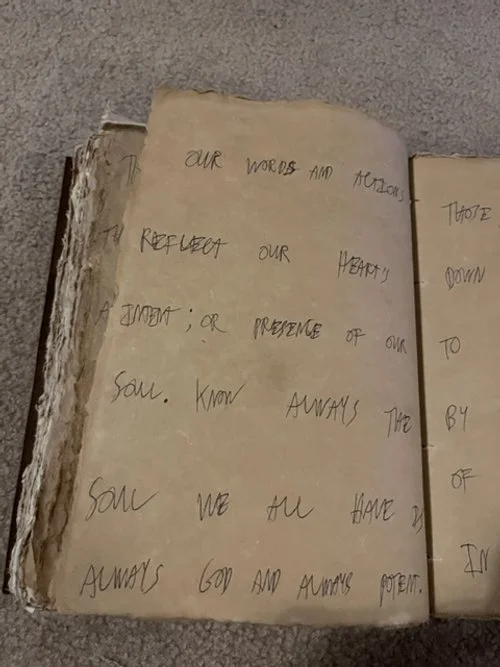 OUR WORDS AND ACTIONS
REFLECT OUR HEARTS
INTENT; OR PRESENCE OF OUR
SOUL. KNOW ALWAYS THE
SOUL WE ALL HAVE IS
ALWAYS GOD AND ALWAYS POTENT.
THOSE
DOWN
TO
BY
OF
IN